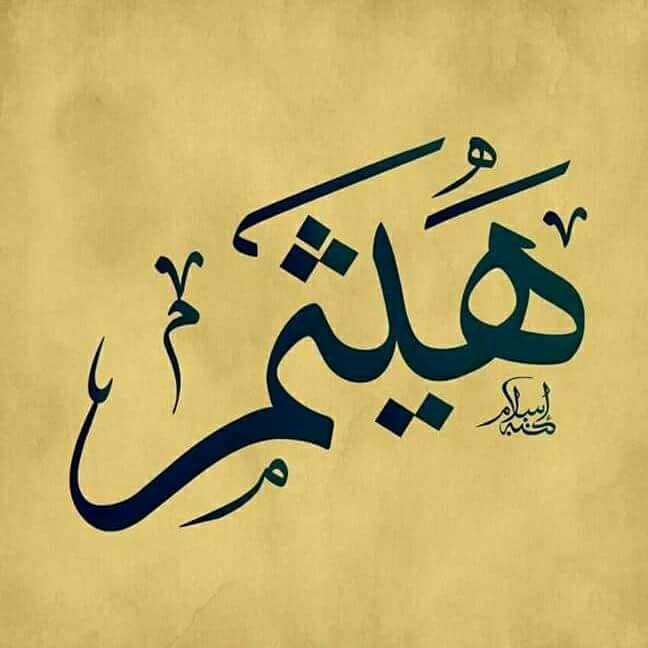 هَيثم
كتبه إسلام